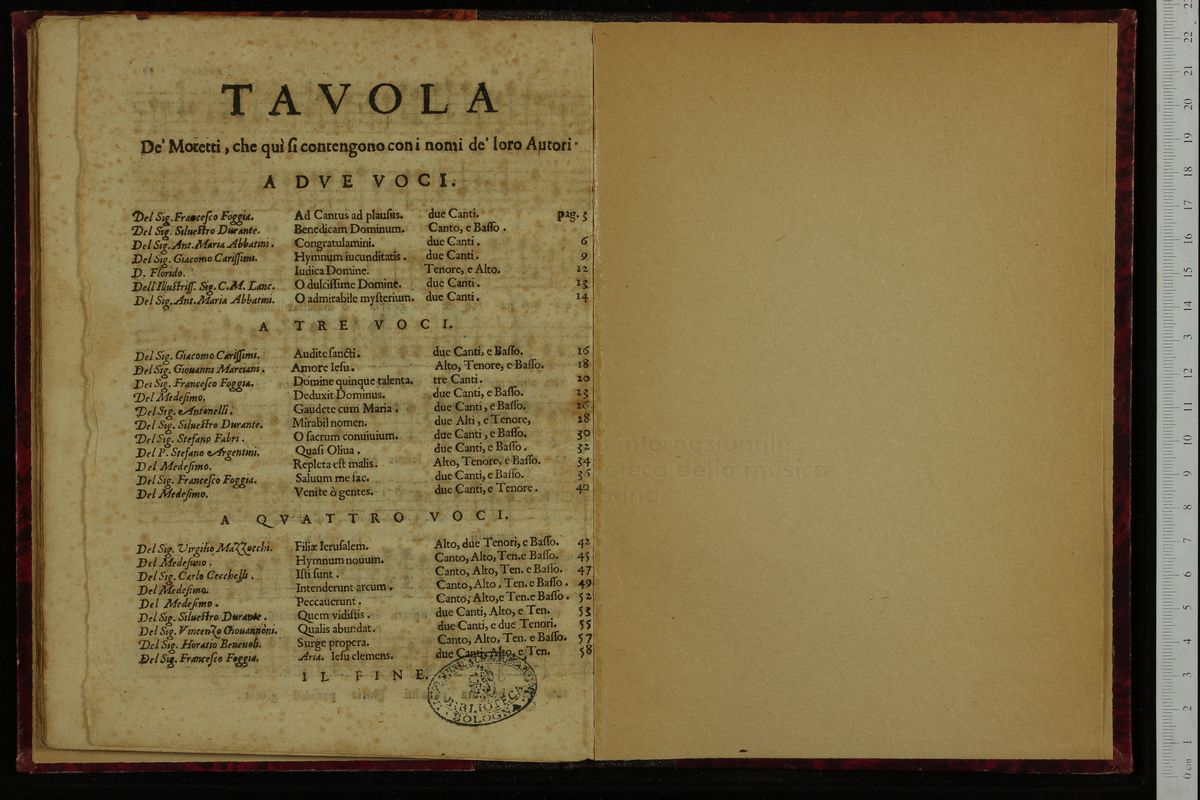 TAVOLA
De' Motetti, che quì ſi contengono con i nomi de' loro Autori.
A DVE VOCI.
Del Sig. Franceſco Foggia. Ad Cantus ad plauſus. due Canti. pag. 3
Del Sig. Silueſtro Durante. Benedicam Dominum. Canto, e Baſſo.
Del Sig. Ant. Maria Abbatini. Congratulamini. due Canti. 6
Del Sig. Giacomo Cariſſimi. Hymnum iucunditatis. due Canti. 9
D. Florido. Iudica Domine. Tenore, e Alto. 12
Dell'Illuſtriſſ. Sig. C. M. Lanc. O dulciſſime Domine. due Canti. 13
Del Sig. Ant. Maria Abbatini. O admirabile myſterium. due Canti. 14
A TRE VOCI.
Del Sig. Giacomo Cariſſimi. Audite ſancti. due Canti, e Baſſo. 16
Del Sig. Giouanni Marciani. Amore Ieſu. Alto, Tenore, e Baſſo. 18
Del Sig. Franceſco Foggia. Domine quinque talenta. tre Canti. 20
Del Medeſimo. Deduxit Dominus. due Canti, e Baſſo. 23
Del Sig. Antonelli. Gaudete cum Maria. due Canti, e Baſſo. 26
Del Sig. Silueſtro Durante. Mirabil nomen. due Alti, e Tenore, 28
Del Sig. Stefano Fabri. O ſacrum conuiuium. due Canti, e Baſſo. 30
Del P. Stefano Argentini. Quaſi Oliua. due Canti, e Baſſo. 32
Del Medeſimo. Repleta eſt malis. Alto, Tenore, e Baſſo. 34
Del Sig. Franceſco Foggia. Saluum me fac. due Canti, e Baſſo. 36
Del Medeſimo. Venite ò gentes. due Canti, e Tenore. 40
A QVATTRO VOCI.
Del Sig. Virgilio Mazzocchi. Filiæ Ieruſalem. Alto, due Tenori, e Baſſo. 42
Del Medeſimo. Hymnum nouum. Canto, Alto, Ten. e Baſſo. 45
Del Sig. Carlo Cecchelli. Iſti ſunt. Canto, Alto, Ten. e Baſſo. 47
Del Medeſimo. Intenderunt arcum. Canto, Alto, Ten. e Baſſo. 49
Del Medeſimo. Peccauerunt. Canto, Alto, e Ten. e Baſſo. 52
Del Sig. Silueſtro Durante. Quem vidiſtis. due Canti, Alto, e Ten. 53
Del Sig. Vincenzo Giouannoni. Qualis abundat. due Canti, e due Tenori. 55
Del Sig. Horatio Beneuoli. Surge propera. Canto, Alto, Ten. e Baſſo. 57
Del Sig. Franceſco Foggia. Aria. Ieſu clemens. due Canti, Alto, e Ten. 58
IL FINE.
BIBLIOTECA
BOLOGNA
internazionale
della musica